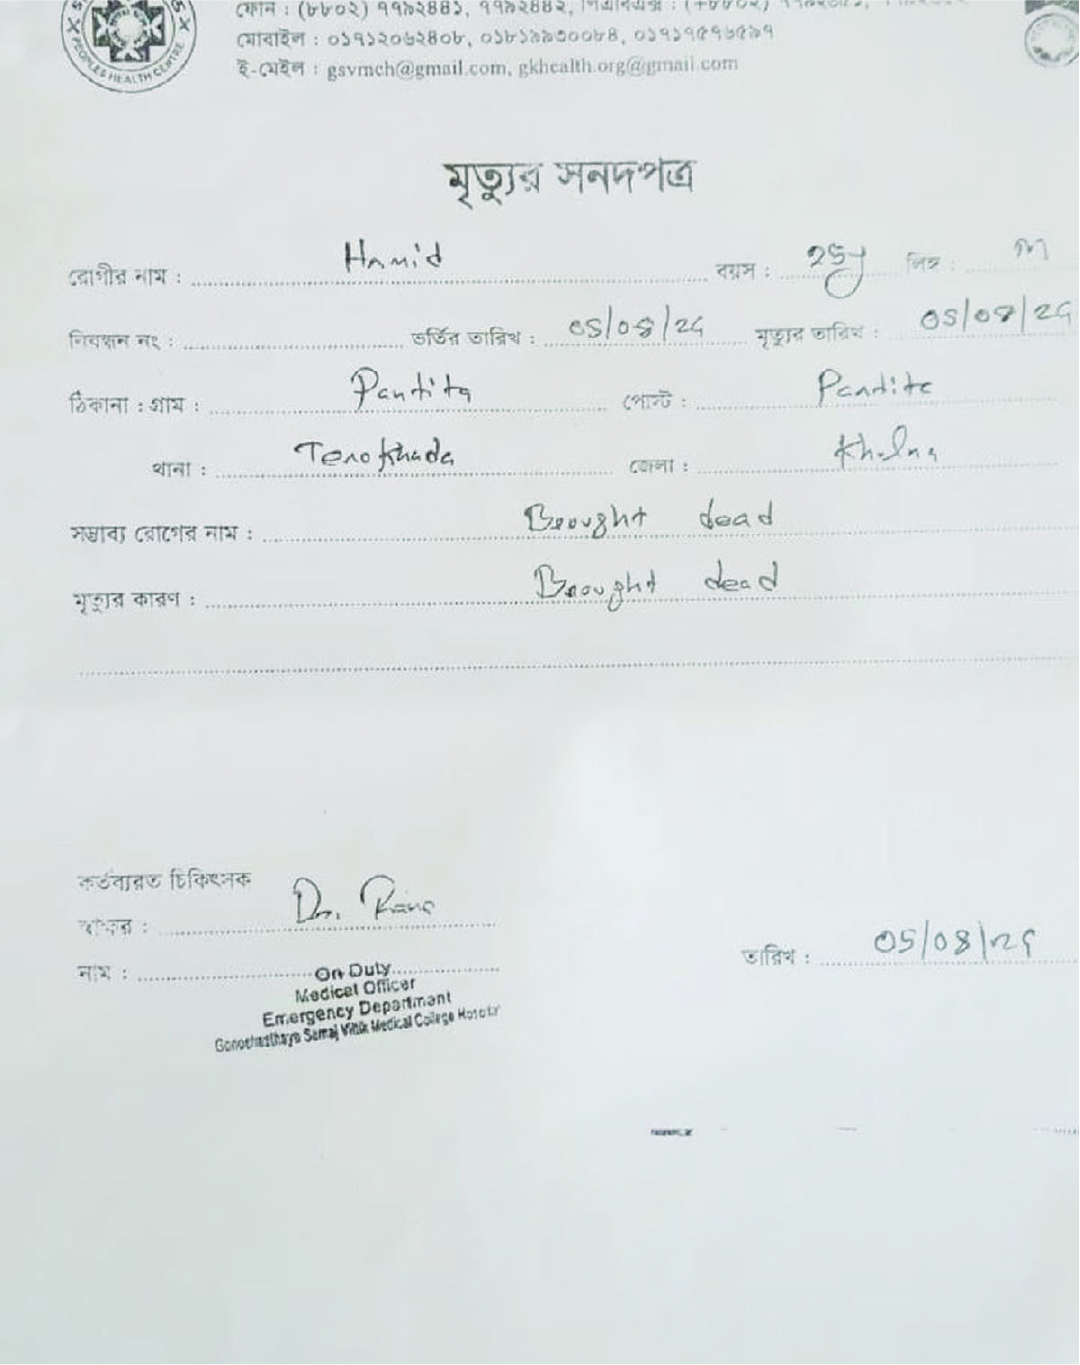 PEOPLES HEALTH CENTRE
ফোন : (৮৮০২) ৭৭৯২৪৪১, ৭৭৯২৪৪২,
মোবাইল :
ই-মেইল : gsvmch@gmail.com, gkhealth.org@gmail.com
মৃত্যুর সনদপত্র
রোগীর নাম : Hamid বয়স : 25y লিঙ্গ : M
নিবন্ধন নং : ভর্তির তারিখ : 05/08/24 মৃত্যুর তারিখ : 05/08/24
ঠিকানা : গ্রাম : Pantita পোস্ট : Pantita
থানা : Terokhada জেলা : Khulna
সম্ভাব্য রোগের নাম : Brought dead
মৃত্যুর কারণ : Brought dead
কর্তব্যরত চিকিৎসক
স্বাক্ষর : Dr. Rana
নাম :
On Duty
Medical Officer
Emergency Department
Gonoshasthaya Samaj Vittik Medical College Hospital
তারিখ : 05/08/24